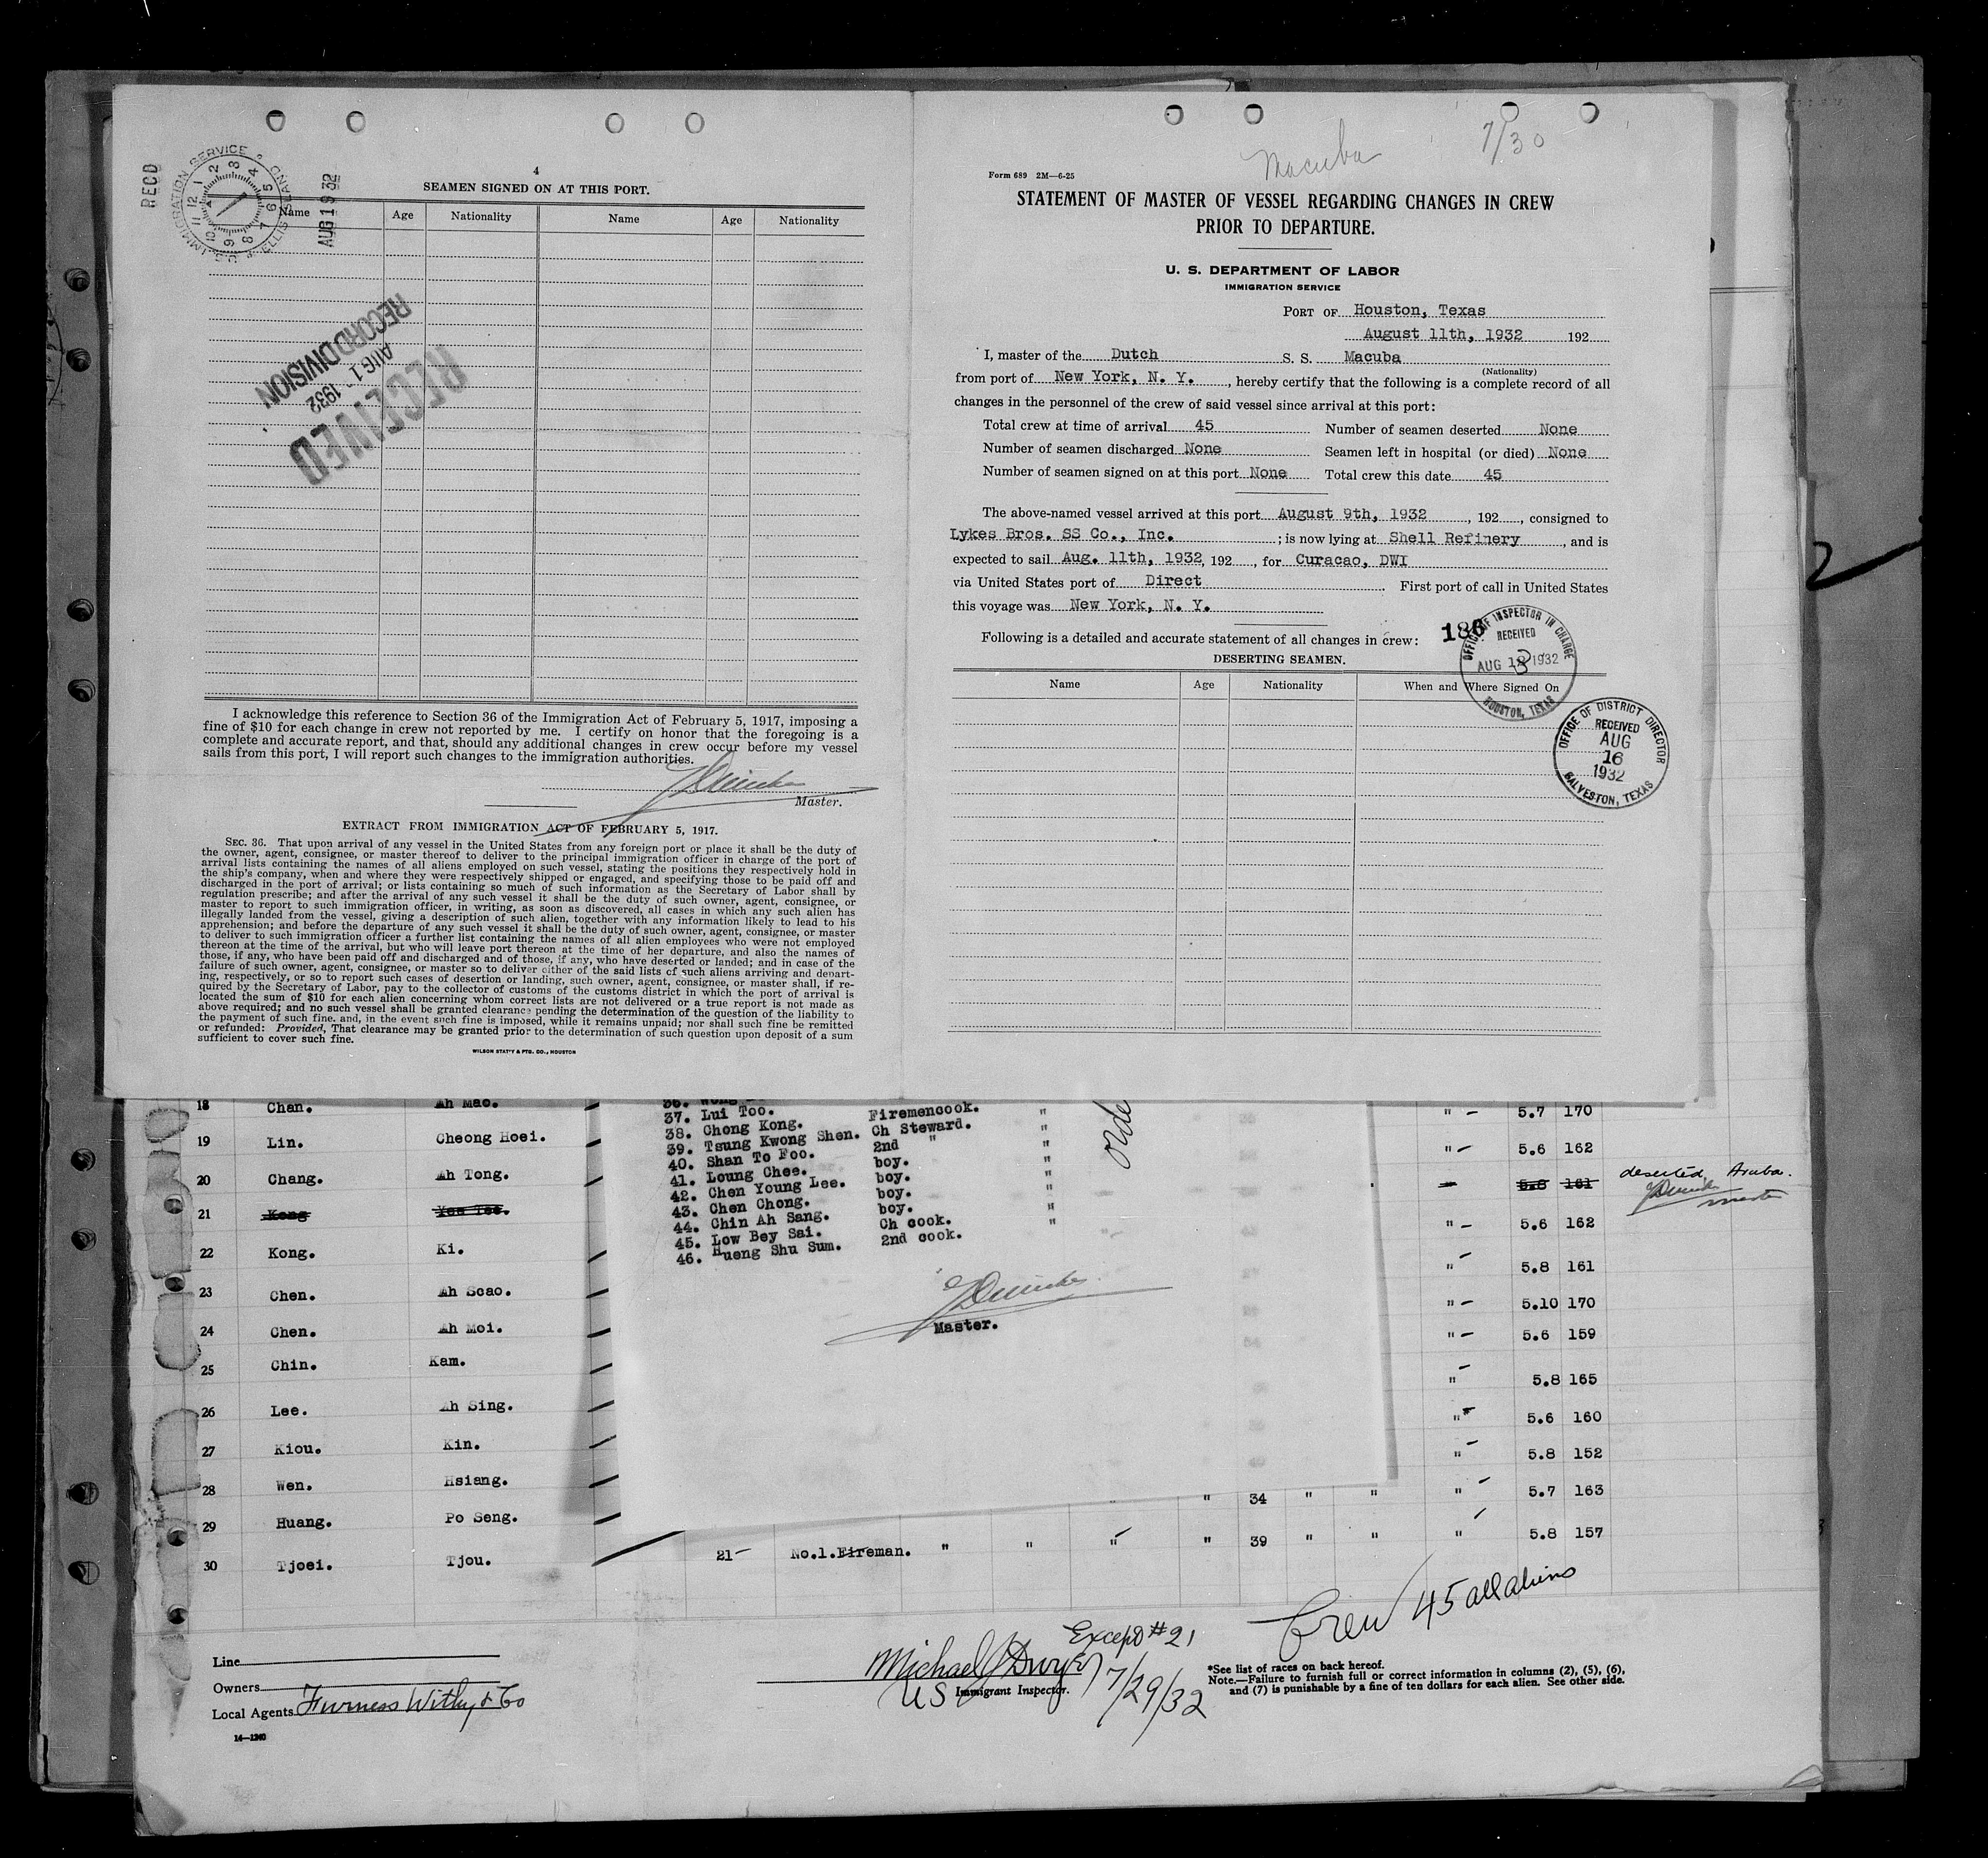 RECD
U.S. IMMIGRATION SERVICE ELLIS ISLAND
12 1 2 3 4 5 6 7 8 9 10 11
AUG 19 32
4
SEAMEN SIGNED ON AT THIS PORT.
Name Age Nationality Name Age Nationality
RECEIVED
AUG 1 1932
RECORD DIVISION
I acknowledge this reference to Section 36 of the Immigration Act of February 5, 1917, imposing a
fine of $10 for each change in crew not reported by me. I certify on honor that the foregoing is a
complete and accurate report, and that, should any additional changes in crew occur before my vessel
sails from this port, I will report such changes to the immigration authorities.
Master.
EXTRACT FROM IMMIGRATION ACT OF FEBRUARY 5, 1917.
SEC. 36. That upon arrival of any vessel in the United States from any foreign port or place it shall be the duty of
the owner, agent, consignee, or master thereof to deliver to the principal immigration officer in charge of the port of
arrival lists containing the names of all aliens employed on such vessel, stating the positions they respectively hold in
the ship's company, when and where they were respectively shipped or engaged, and specifying those to be paid off and
discharged in the port of arrival; or lists containing so much of such information as the Secretary of Labor shall by
regulation prescribe; and after the arrival of any such vessel it shall be the duty of such owner, agent, consignee, or
master to report to such immigration officer, in writing, as soon as discovered, all cases in which any such alien has
illegally landed from the vessel, giving a description of such alien, together with any information likely to lead to his
apprehension; and before the departure of any such vessel it shall be the duty of such owner, agent, consignee, or master
to deliver to such immigration officer a further list containing the names of all alien employees who were not employed
thereon at the time of the arrival, but who will leave port thereon at the time of her departure, and also the names of
those, if any, who have been paid off and discharged and of those, if any, who have deserted or landed; and in case of the
failure of such owner, agent, consignee, or master so to deliver either of the said lists of such aliens arriving and depart-
ing, respectively, or so to report such cases of desertion or landing, such owner, agent, consignee, or master shall, if re-
quired by the Secretary of Labor, pay to the collector of customs of the customs district in which the port of arrival is
located the sum of $10 for each alien concerning whom correct lists are not delivered or a true report is not made as
above required; and no such vessel shall be granted clearance pending the determination of the question of the liability to
the payment of such fine. and, in the event such fine is imposed, while it remains unpaid; nor shall such fine be remitted
or refunded: Provided, That clearance may be granted prior to the determination of such question upon deposit of a sum
sufficient to cover such fine.
WILSON STAT'Y & PTG. CO., HOUSTON
Macuba 7/30
Form 689 2M—6-25
STATEMENT OF MASTER OF VESSEL REGARDING CHANGES IN CREW
PRIOR TO DEPARTURE.
U. S. DEPARTMENT OF LABOR
IMMIGRATION SERVICE
PORT OF Houston, Texas
August 11th, 1932 192
I, master of the Dutch S. S. Macuba
(Nationality)
from port of New York, N. Y. , hereby certify that the following is a complete record of all
changes in the personnel of the crew of said vessel since arrival at this port:
Total crew at time of arrival 45 Number of seamen deserted None
Number of seamen discharged None Seamen left in hospital (or died) None
Number of seamen signed on at this port None Total crew this date 45
The above-named vessel arrived at this port August 9th, 1932 , 192 , consigned to
Lykes Bros. SS Co., Inc. ; is now lying at Shell Refinery , and is
expected to sail Aug. 11th, 1932, 192 , for Curacao, DWI
via United States port of Direct . First port of call in United States
this voyage was New York, N. Y.
Following is a detailed and accurate statement of all changes in crew:
186
OFFICE OF INSPECTOR IN CHARGE
RECEIVED
AUG 1932
HOUSTON, TEXAS
DESERTING SEAMEN.
Name Age Nationality When and Where Signed On
OFFICE OF DISTRICT DIRECTOR
RECEIVED
AUG
16
1932
GALVESTON, TEXAS
2
18 Chan. Ah Mao. " 5.7 170
19 Lin. Cheong Hoei. " 5.6 162
20 Chang. Ah Tong. 5.8 161 deserted, Aruba.
21 Kong Yee Tee. " 5.6 162
22 Kong. Ki. " 5.8 161
23 Chen. Ah Scao. " 5.10 170
24 Chen. Ah Moi. " 5.6 159
25 Chin. Kam. " 5.8 165
26 Lee. Ah Sing. " 5.6 160
27 Kiou. Kin. " 5.8 152
28 Wen. Hsiang. " 34 " " " 5.7 163
29 Huang. Po Seng. " 39 " " " 5.8 157
30 Tjoei. Tjou. 21 No.1.Fireman. " " "
36. Wong
37. Lui Too. Firemencook. "
38. Chong Kong. Ch Steward. "
39. Tsung Kwong Shen. 2nd " "
40. Shan To Foo. boy. "
41. Loung Chee. boy. "
42. Chen Young Lee. boy. "
43. Chen Chong. boy. "
44. Chin Ah Sang. Ch cook. "
45. Low Bey Sai. 2nd cook.
46. Hueng Shu Sum.
Master.
Crew 45 all aliens
Except #21
Line
Owners
Local Agents Furness Withy & Co
14—1240
Michael J Dwyer 7/29/32
US Immigrant Inspector.
*See list of races on back hereof.
Note.—Failure to furnish full or correct information in columns (2), (5), (6),
and (7) is punishable by a fine of ten dollars for each alien. See other side.